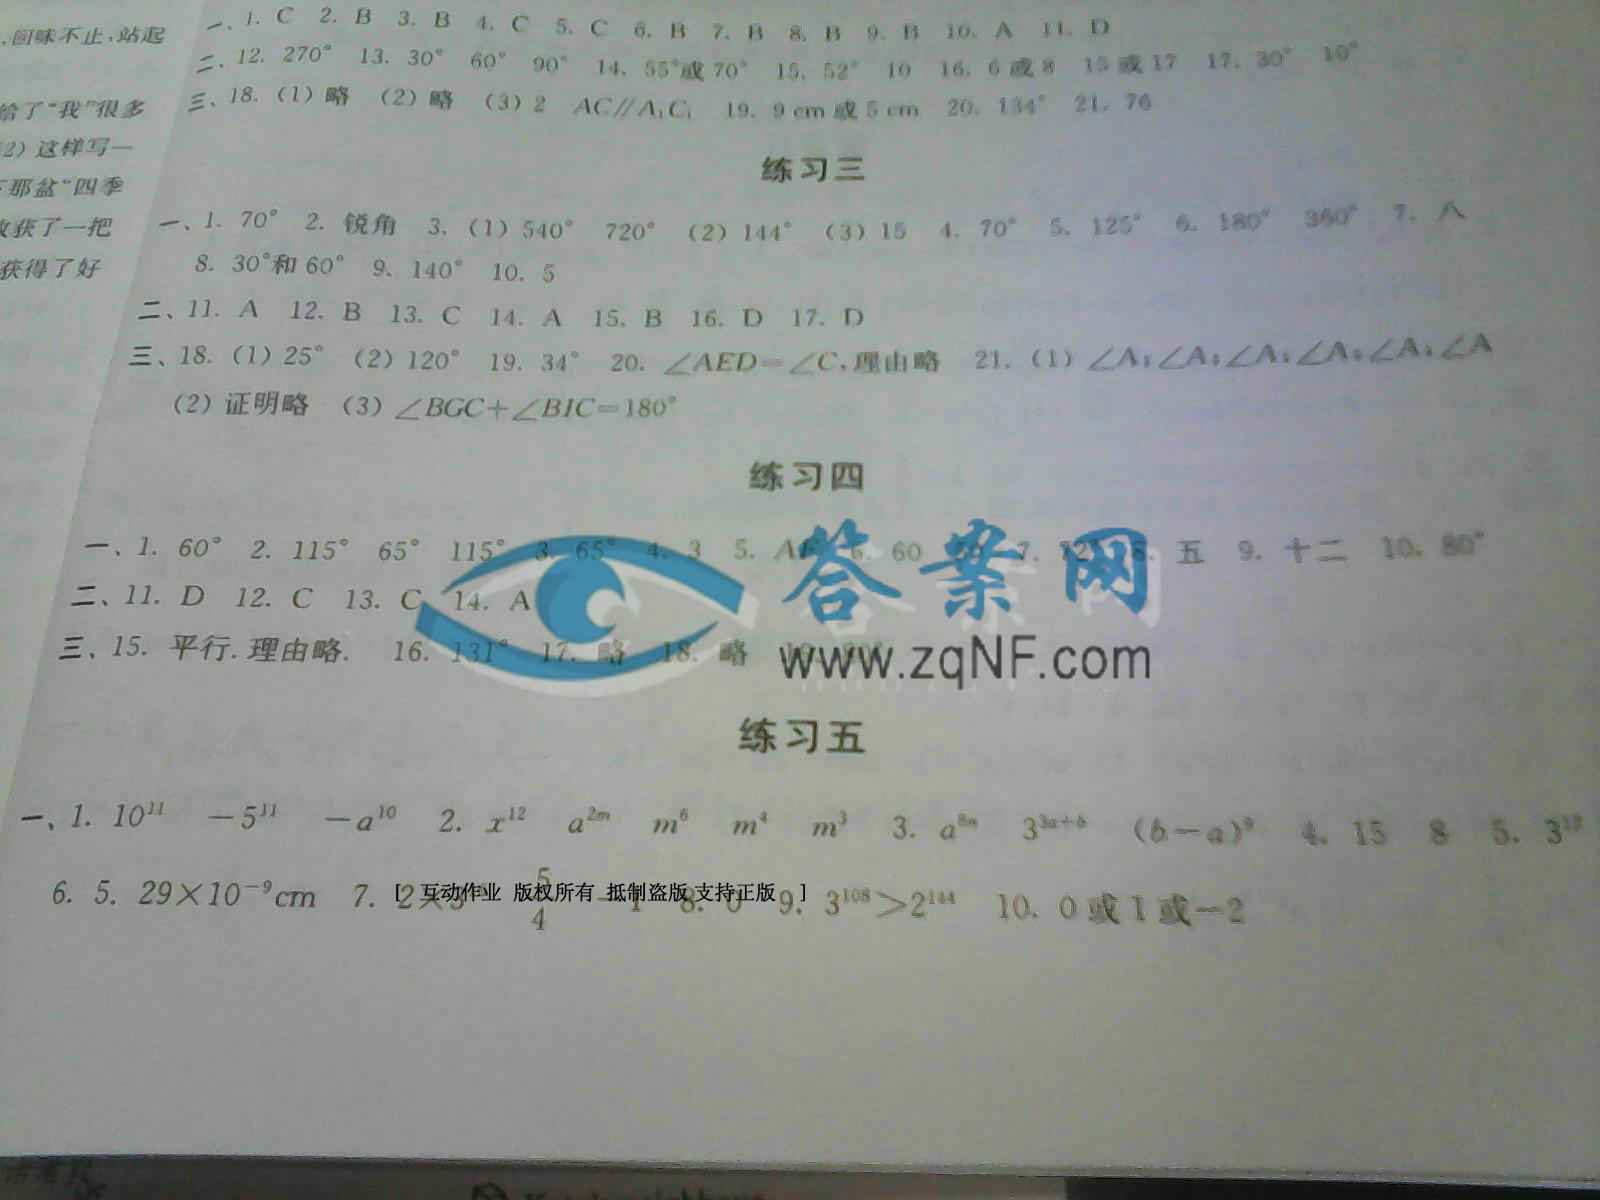 ,回味不止,站起
给了“我”很多
2) 这样写一
下那盆“四季
收获了一把
获得了好
一、1. C 2. B 3. B 4. C 5. C 6. B 7. B 8. B 9. B 10. A 11. D
二、12. 270° 13. 30° 60° 90° 14. 55°或70° 15. 52° 10 16. 6或8 15或17 17. 30° 10°
三、18. (1) 略 (2) 略 (3) 2 AC∥A₁C₁ 19. 9 cm或5 cm 20. 134° 21. 76
练习三
一、1. 70° 2. 锐角 3. (1) 540° 720° (2) 144° (3) 15 4. 70° 5. 125° 6. 180° 360° 7. 八
8. 30°和60° 9. 140° 10. 5
二、11. A 12. B 13. C 14. A 15. B 16. D 17. D
三、18. (1) 25° (2) 120° 19. 34° 20. ∠AED=∠C,理由略 21. (1) ∠A;∠A;∠A;∠A;∠A;∠A
(2) 证明略 (3) ∠BGC+∠BIC=180°
练习四
一、1. 60° 2. 115° 65° 115° 3. 65° 4. 3 5. 6. 60 7. 72° 8. 五 9. 十二 10. 80°
二、11. D 12. C 13. C 14. A
三、15. 平行. 理由略. 16. 131° 17. 略 18. 略
答案网
www.zqNF.com
练习五
一、1. 10¹¹ −5¹¹ −a¹⁰ 2. x¹² a²ᵐ m⁶ m⁴ m³ 3. a⁸ⁿ 3³ᵃ⁺ᵇ (b−a)⁹ 4. 15 8 5. 3¹²
6. 5. 29×10⁻⁹cm 7. 2×3 5/4 −1 8. 0 9. 3¹⁰⁸>2¹⁴⁴ 10. 0或1或−2
[ 互动作业 版权所有 抵制盗版 支持正版 ]